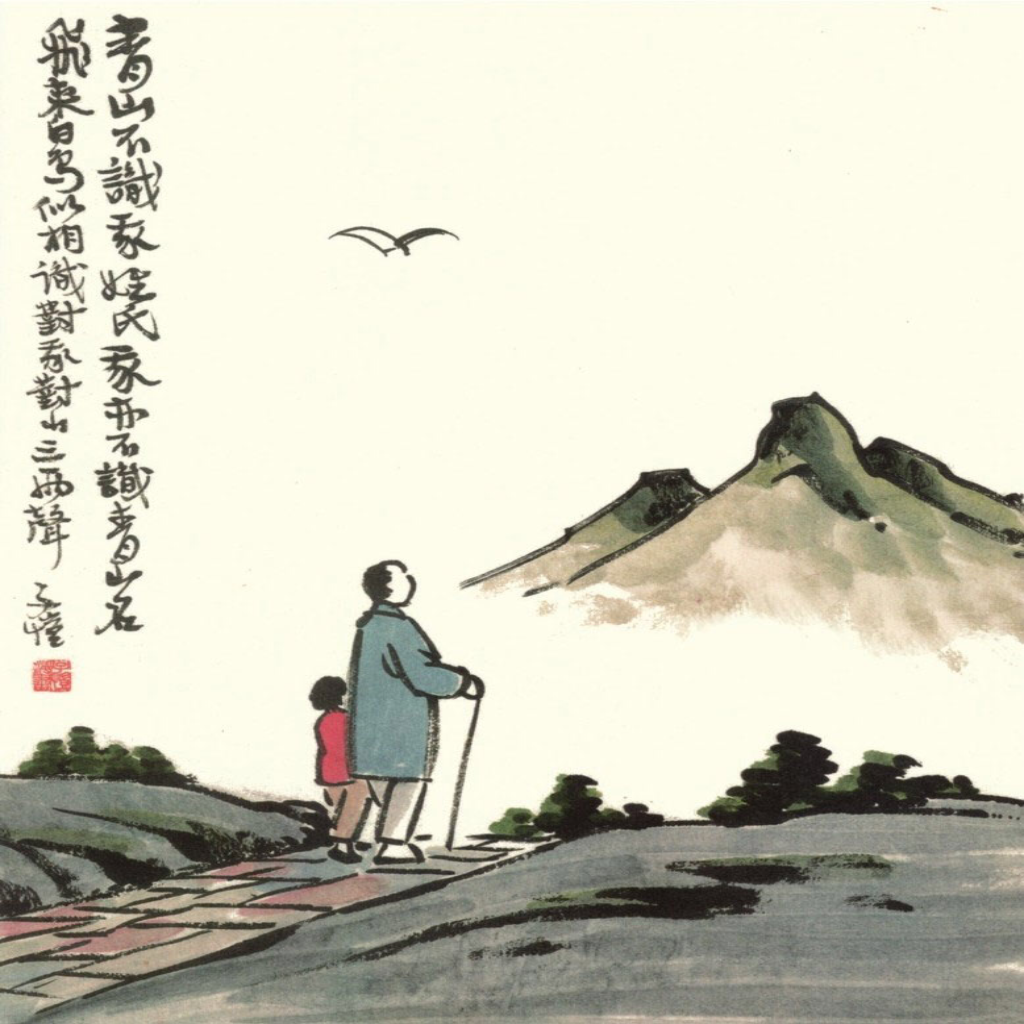 青山不識我姓氏我亦不識青山名
飛來白鳥似相識對我對山三兩聲 子愷